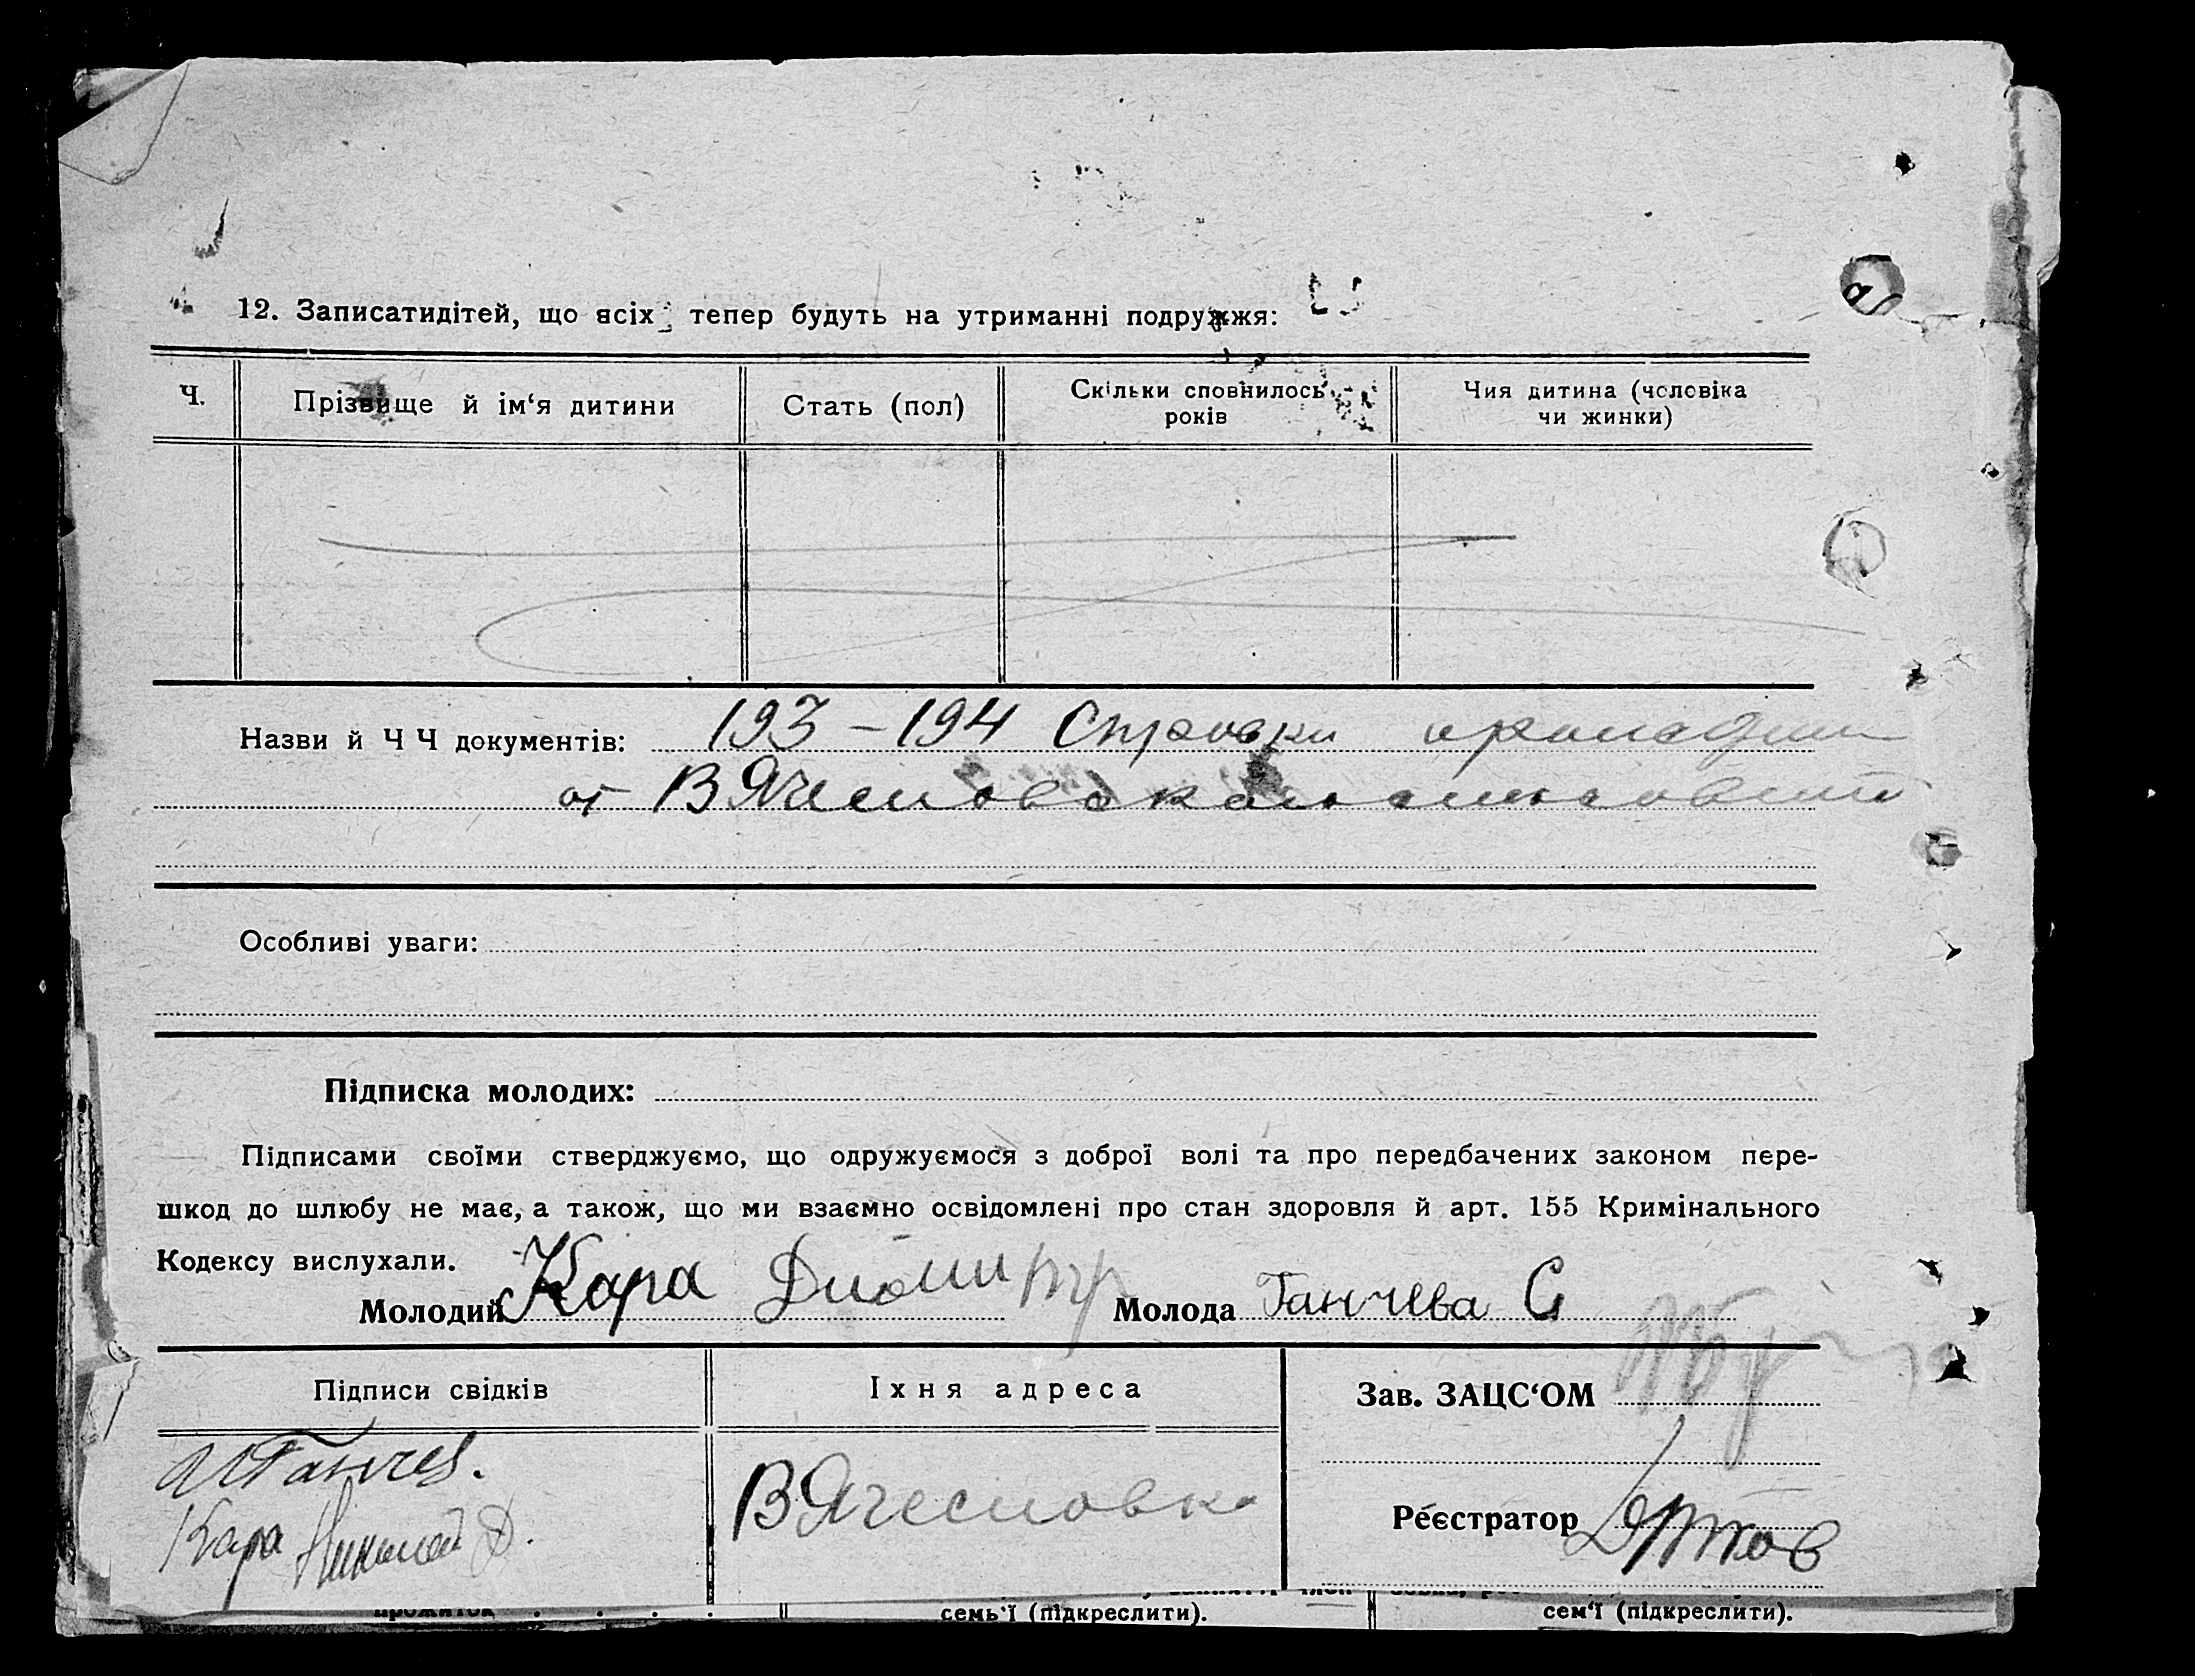 12. Записатидітей, що всіх тепер будуть на утриманні подружжя:
Ч.
Прізвище й ім‘я дитини
Стать (пол)
Скільки сповнилось
років
Чия дитина (чоловіка
чи жинки)
Назви й Ч Ч документів: 193 – 194 Справки
от В Ячеславка
Особливі уваги:
Підписка молодих:
Підписами своїми стверджуємо, що одружуємося з доброї волі та про передбачених законом пере-
шкод до шлюбу не має, а також, що ми взаємно освідомлені про стан здоровля й арт. 155 Кримінального
Кодексу вислухали.
Молодий Кара Диомитр Молода Ганчева С
Підписи свідків
Їхня адреса
Зав. ЗАЦС‘ОМ
Ганчев.
Кара Николай Д.
В Ячесловка
Реєстратор
прожиток
семь‘ї (підкреслити).
сем‘ї (підкреслити).